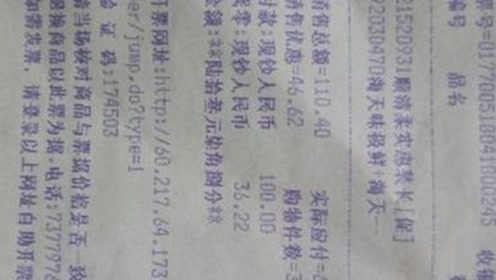 票号=0177005180418000245 收银
编号 品名
21520931 顺清柔实惠装长[促]
22030470 海天味极鲜+海天一
销售总额=110.40 实际应付=
销售优惠=46.62 购物件数=3
付款:现钞人民币 100.00
找零:现钞人民币 36.22
金额:**陆拾叁元柒角捌分**
票网址:http://60.217.64.173
er/jump.do?type=1
验 证 码:174503
请当场核对商品与票据价格是否一致
退换商品以此票为据,电话:7377978
如需发票,请登录以上网址自助开票